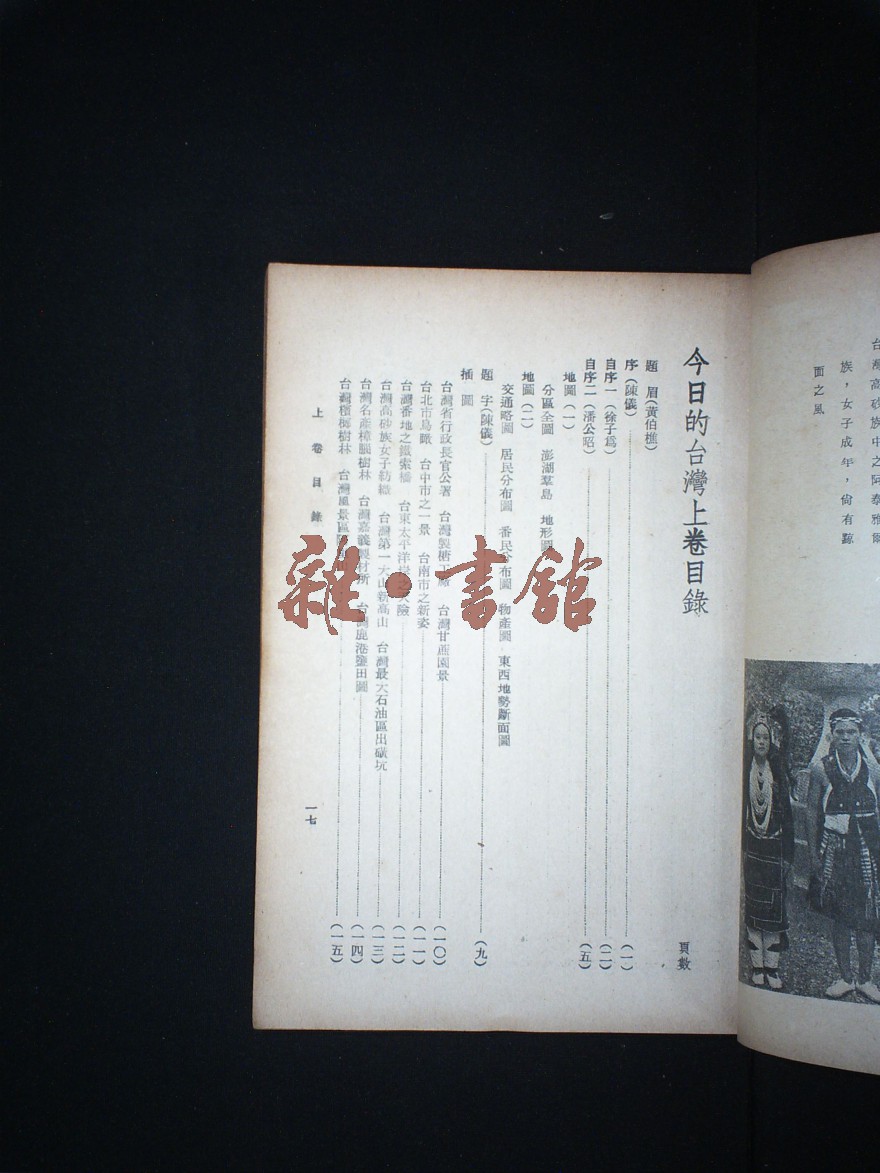 台灣高砂族中之阿泰雅爾
族，女子成年，尙有黥
面之風
今日的台灣上卷目錄
頁數
題 眉(黃伯樵)
序(陳儀)(一)
自序一(徐子爲)(二)
自序二(潘公昭)(五)
地圖(一)
分區全圖 澎湖羣島 地形圖
地圖(二)
交通略圖 居民分布圖 番民分布圖 物產圖 東西地勢斷面圖
題 字(陳儀)(九)
插 圖
台灣省行政長官公署 台灣製糖工廠 台灣甘蔗園景(一〇)
台北市鳥瞰 台中市之一景 台南市之新姿(一一)
台灣番地之鐵索橋 台東太平洋岸之天險(一二)
台灣高砂族女子紡織 台灣第一大山新高山 台灣最大石油區出礦坑(一三)
台灣名產樟腦樹林 台灣嘉義製材所 台灣鹿港鹽田圖(一四)
台灣檳榔樹林 台灣風景區(一五)
上 卷 目 錄
一七
雜·書館